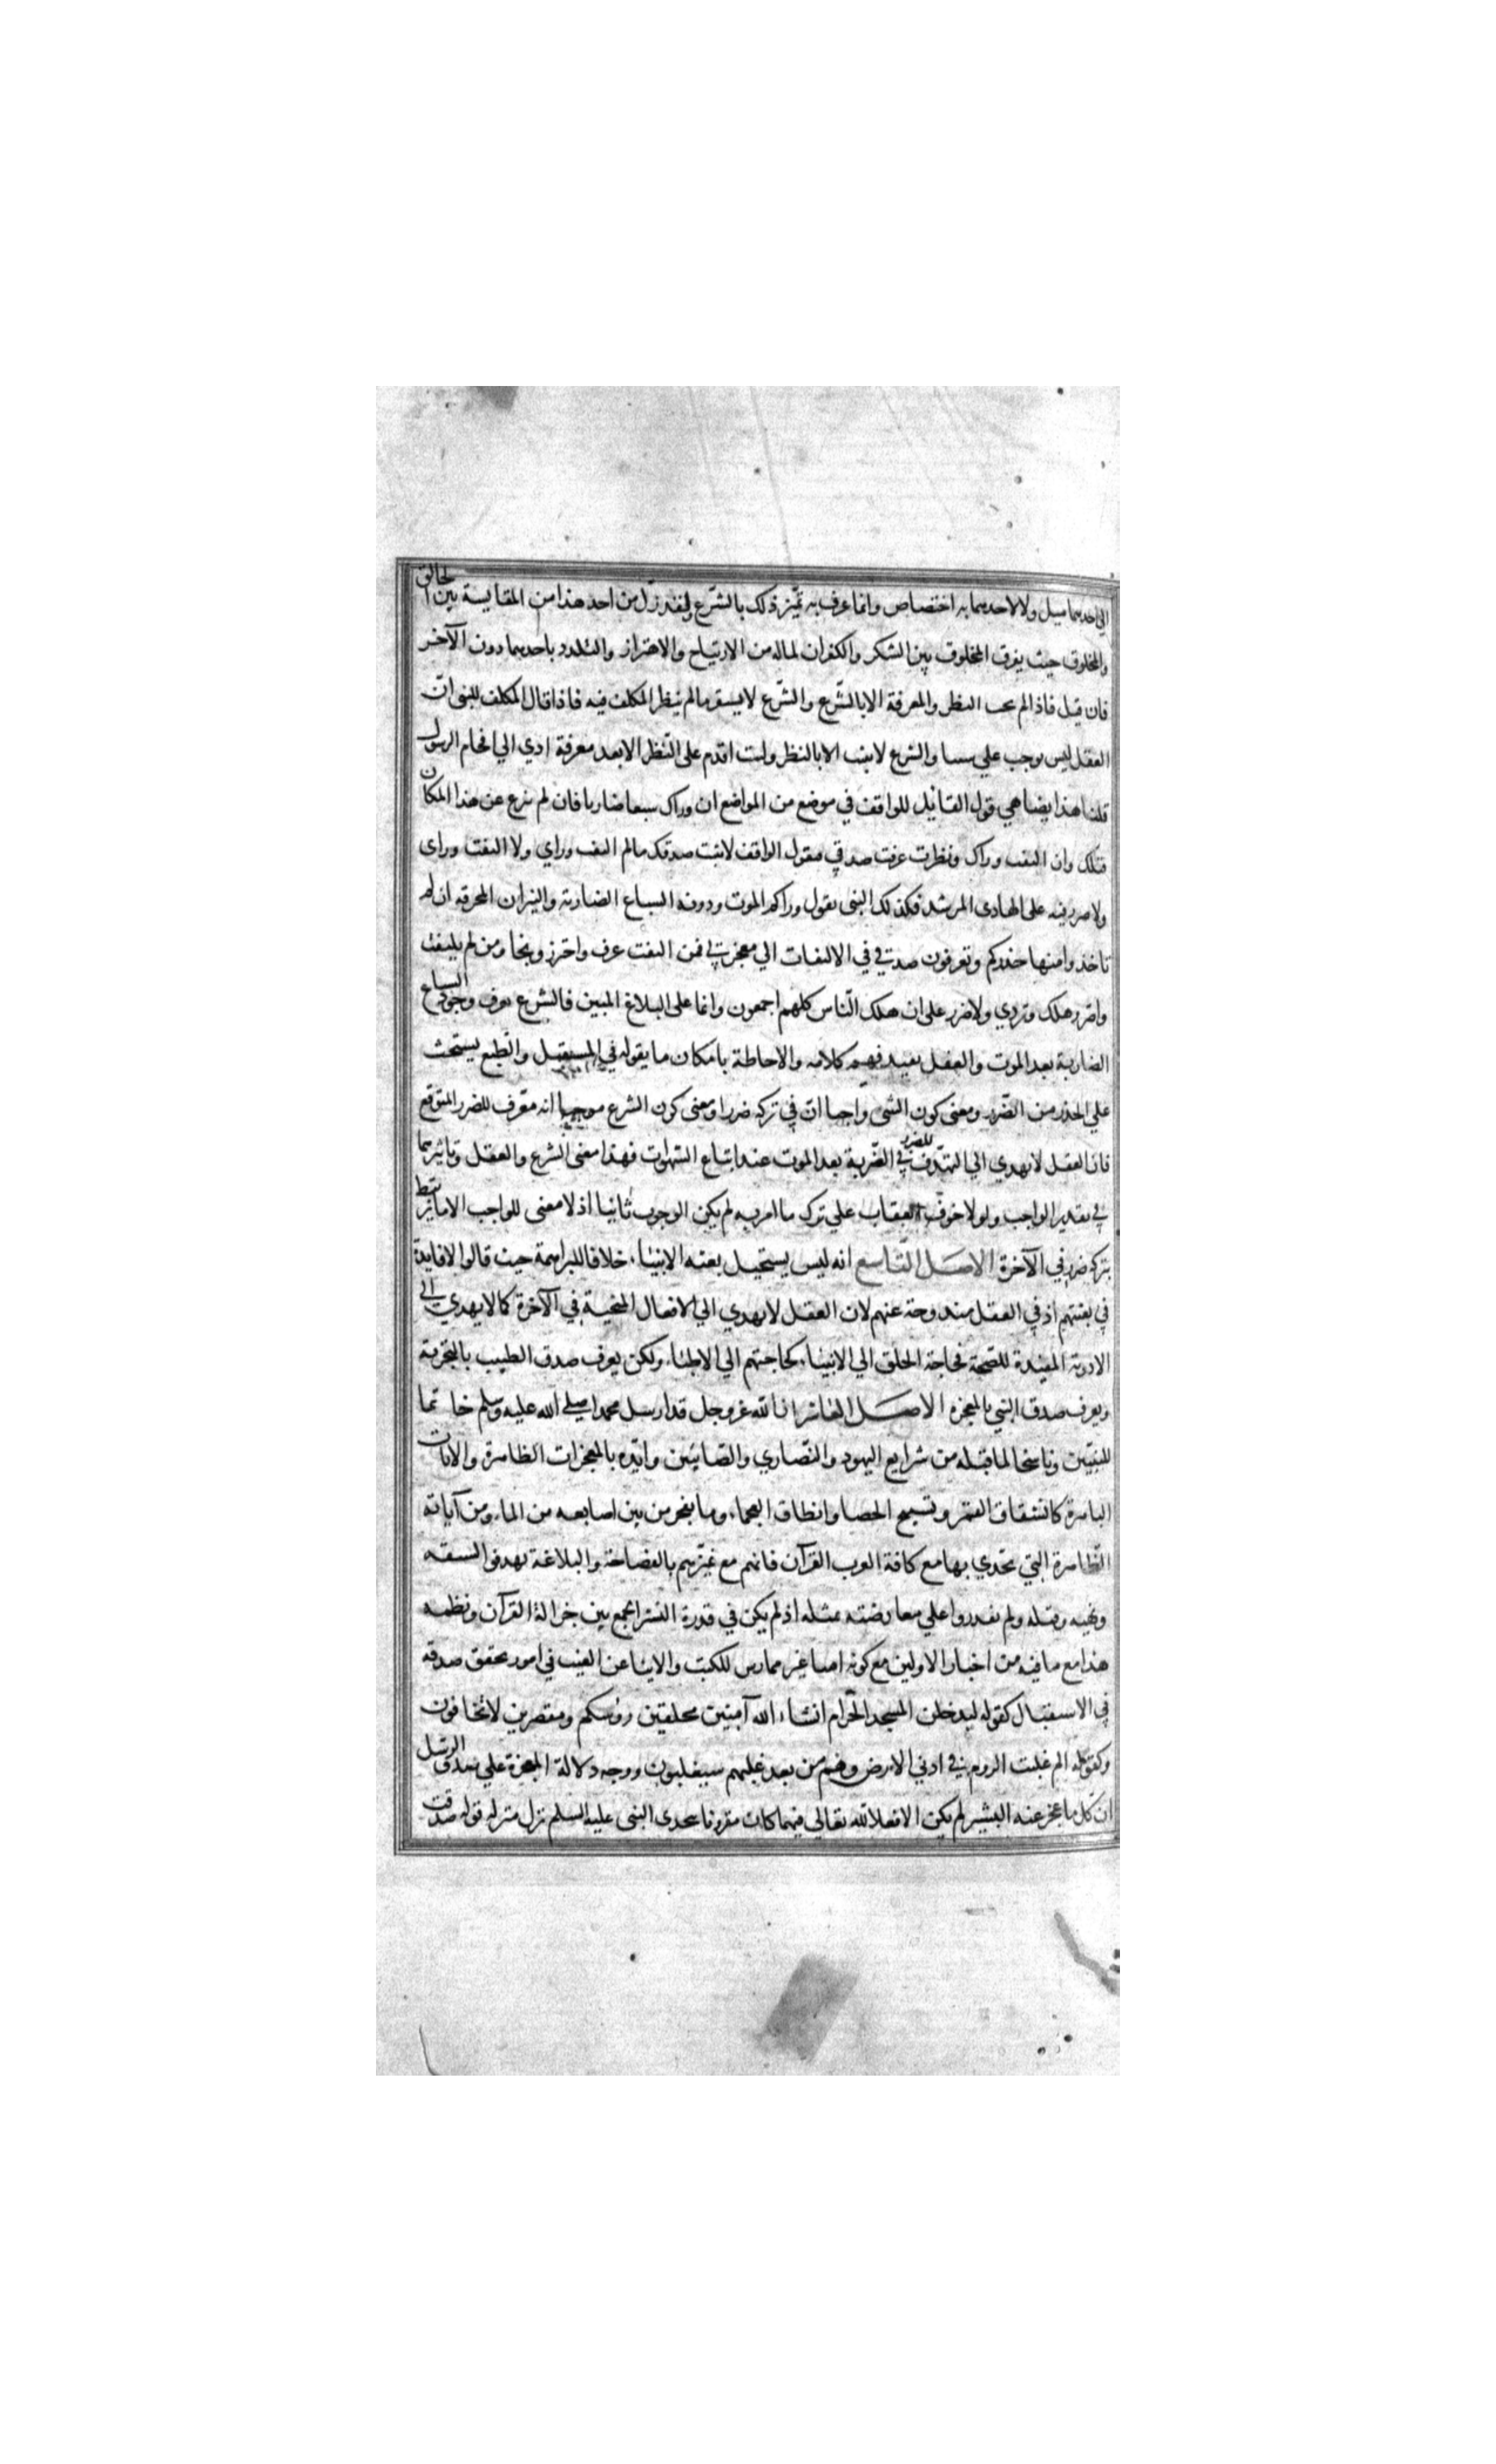 الي احدهما ميل ولا لاحدهما به اختصاص وانما عرف به تميّز ذلك بالشّرع ولقد زل من اخذ هذا من المقايسة بين الخالق
والمخلوق حيث يفرق المخلوق بين الشكر والكفران لماله من الارتياح والاهتزاز والتلذذ باحدهما دون الآخر
فان قيل فاذا لم يجب النظر والمعرفة الا بالشّرع والشّرع لا يستقر مالم ينظر المكلف فيه فاذا قال المكلف للنبي انّ
العقل ليس يوجب علي شيئا والشرع لا يثبت الا بالنظر ولست اقدم على النّظر الا بعد معرفة ادي الي افحام الرسول
قلنا هذا يضاهي قول القائيل للواقف في موضع من المواضع ان وراك سبعا ضاريا فان لم تنزع عن هذا المكان
قتلك وان التفت وراك ونظرت عرفت صدقي فيقول الواقف لا يثبت صدقك مالم التفت وراي ولا التفت وراى
ولا ضرر فيه على الهادى المرشد فكذلك النبى يقول وراكم الموت ودونه السباع الضارية والنيران المحرقه ان لم
تاخذوا منها حذركم وتعرفون صدقي في الالتفات الي معجزتي فمن التفت عرف واحترز ونجا ومن لم يلتفت
واصّر هلك وتردي ولا ضرر على ان هلك النّاس كلهم اجمعون وانما على البلاغ المبين فالشرع يعرف وجود السباع
الضارية بعد الموت والعقل يفيد فهم كلامه والاحاطة بامكان ما يقوله في المستقبل والطبع يستحث
علي الحذر من الضّرر ومعنى كون الشى واجبا انّ في تركه ضررا ومعنى كون الشرع موجبا انه معّرف للضرر المتوقع
فان العقل لا يهدي الي التهدّف للضرر في الضّربة بعد الموت عند اتباع الشهوات فهذا معنى الشرع والعقل وتاثيرهما
في تقدير الواجب ولولا خوف العقاب علي ترك ما امر به لم يكن الوجوب ثابتا اذ لا معنى للواجب الا ما يرتبط
بتركه ضرر في الآخرة الاصل التّاسع انه ليس يستحيل بعثه الانبياء خلافا للبراهمة حيث قالوا لا فايدة
في بعثتهم اذ في العقل مندوحة عنهم لان العقل لا يهدي الي الافعال المنجية في الآخرة كما لا يهدي الي
الادوية المفيدة للصّحة فحاجة الخلق الي الانبياء كحاجتهم الي الاطباء ولكن يعرف صدق الطبيب بالتجربة
ويعرف صدق النبي بالمعجزه الاصل العاشر ان الله عز وجل قد ارسل محمدا صلي الله عليه وسلم خاتما
للنبيّين وناسخا لما قبله من شرايع اليهود والنّصاري والصّابئين وايّده بالمعجزات الظاهرة والايات
الباهرة كانشقاق القمر وتسبيح الحصا وانطاق العجماء وما تفجر من بين اصابعه من الماء ومن آياته
الظّاهرة التي تحدي بها مع كافة العرب القرآن فانهم مع تميّزهم بالفصاحة والبلاغة تهدفوا لسبقه
ونهبه وقتله ولم يقدروا علي معارضته بمثله اذ لم يكن في قدرة البشر الجمع بين جزالة القرآن ونظمه
هذا مع ما فيه من اخبار الاولين مع كونه اميا غير ممارس للكتب والانبا عن الغيب في امور تحقق صدقه
في الاستقبال كقوله لتدخلن المسجد الحّرام انشاء الله آمنين محلقين روسكم ومقصرين لا تخافون
وكقوله الم غلبت الروم في ادني الارض وهم من بعد غلبهم سيغلبون ووجه دلالة المعجزة علي صدق الرسل
ان كل ما عجز عنه البشير لم يكن الا فعلا لله تعالي فمهما كان مقرونا بتحدى النبى عليه السلم نزل منزلة قوله صدقت